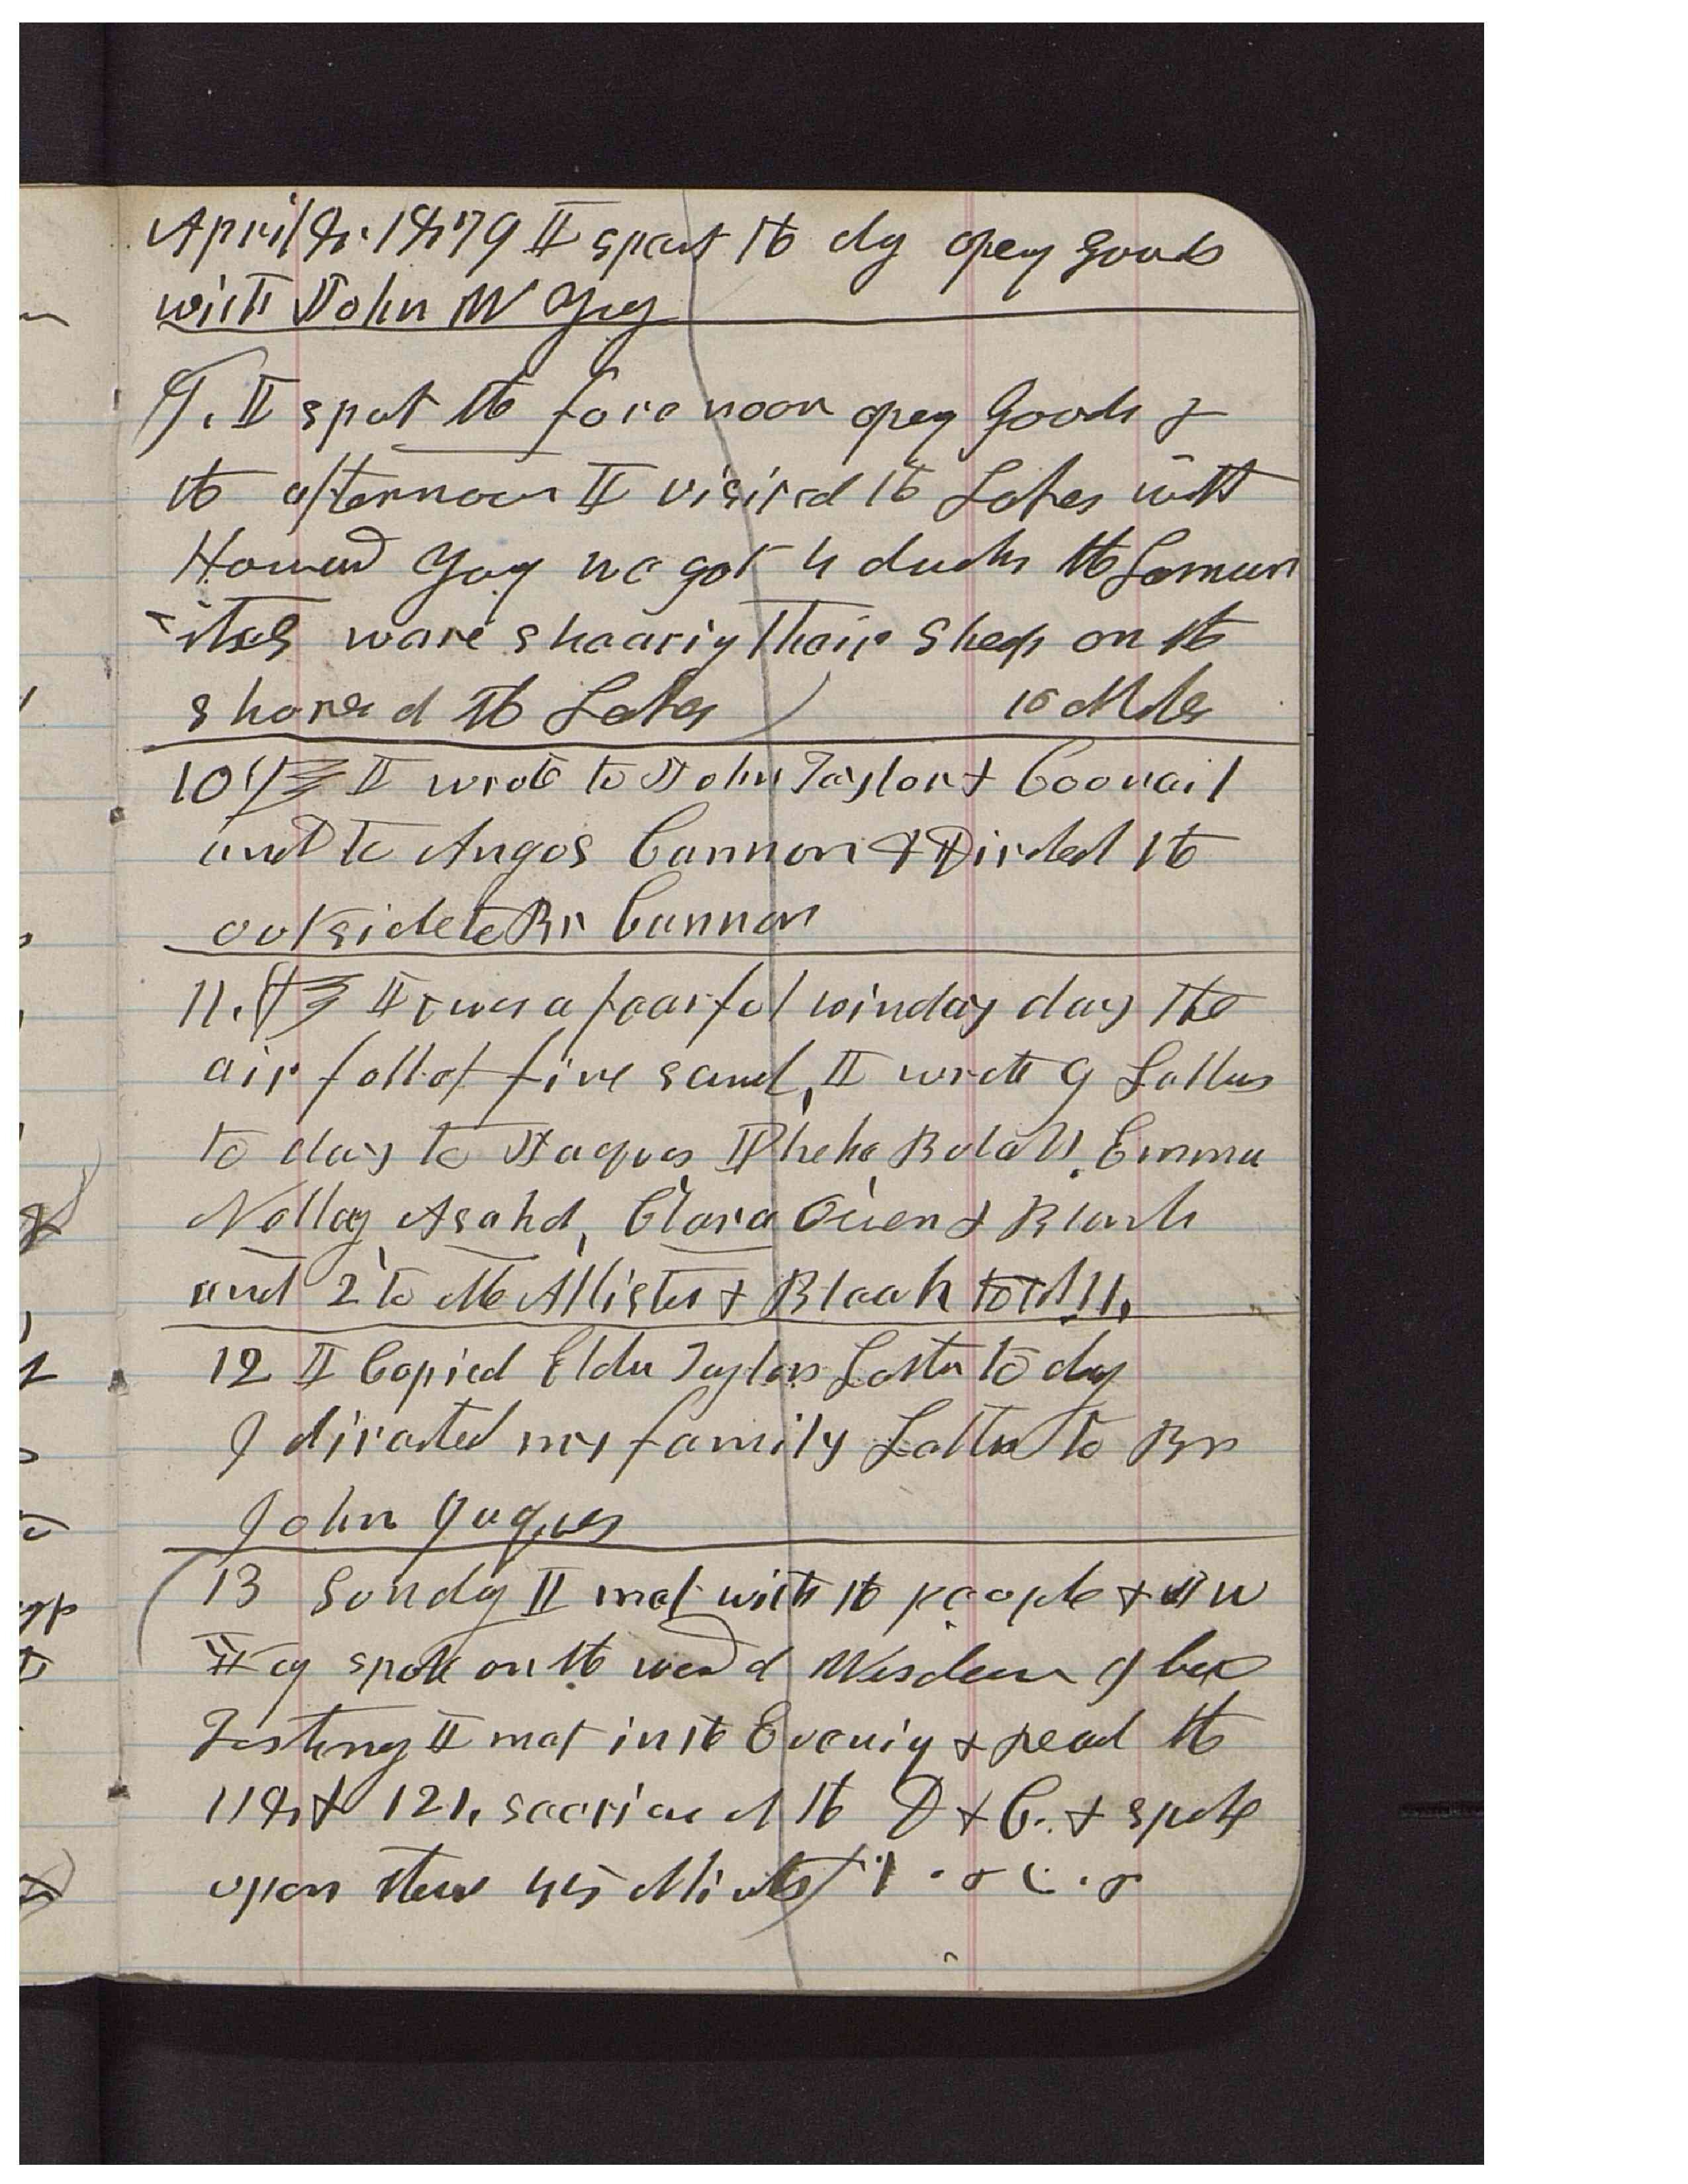 April 8. 1879 I spent the day openg goods
with John W Yng
9. I spent the fore noon openg Goods &
the afternoon I visited the Lakes with
Howard Yog we got 4 ducks the Laman
-ites ware shearig their sheep on the
shores of the Lakes 16 Miles
10 I wrote to John Taylor & Councail
and to Angos Cannon & Dircted the
outside to Br Cannon
11. It was a fearful winday day the
air full of fine sand, I wrote 9 Letters
to day to Jaques Phebe Bulah, Emma
Nellay Asahel, Clara Owen & Blanch
and 2 to McAllister & Bleak
12 I Copied Elder Taylors Letter to day
I diracted my family Letter to Br
John Jaques
13 Sunday I met with the people & J W
Yog spoke on the word of Wisdom
I met in the Evenig & read the
118, & 121, section of the D & C. & spoke
upon them 45 Minuts